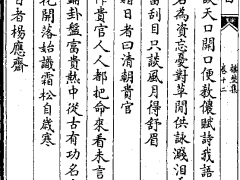 卷十二
談天口開口便教儍賦詩我語
名為資忘憂對草閒供詠濺淚
當刮目只談風月得舒眉
日者曰清朝貴官
作貴官人人都把命來看末言
鋪卦盤富貴熱中從古有功名
花開落始識霜松自歲寒
日者楊應齋